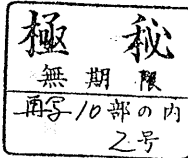 極秘
無期限
再写10部の内
2号